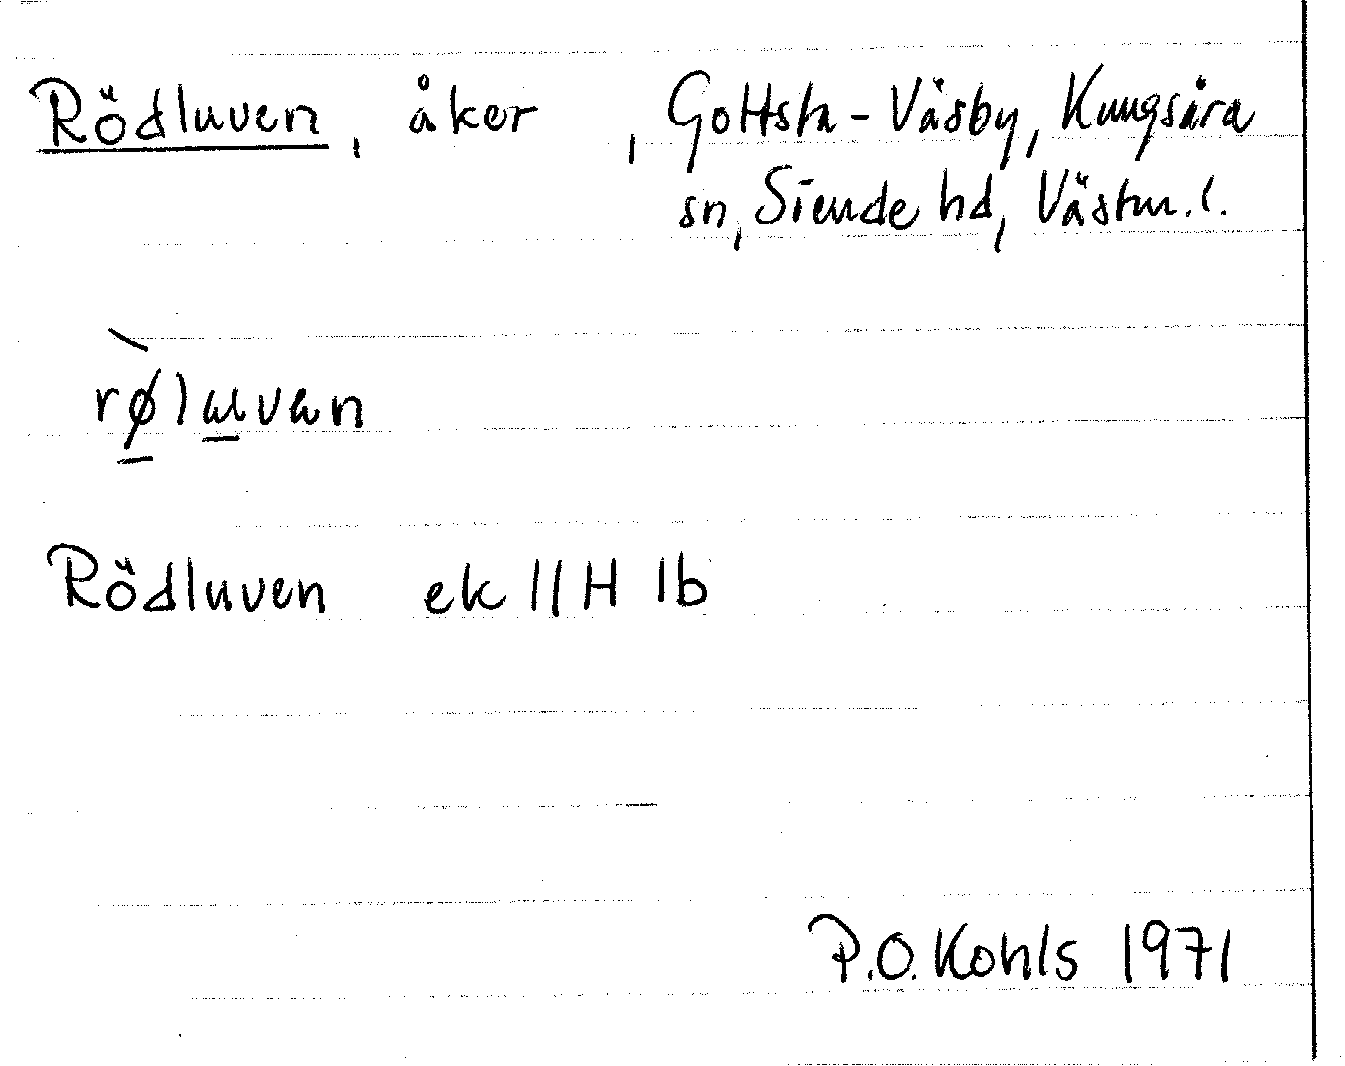 Rödluven, åker , Gottsta-Väsby, Kungsåra
sn, Siende hd, Västm.l.
Rödluven ek 11H 1b
P.O. Kohls 1971